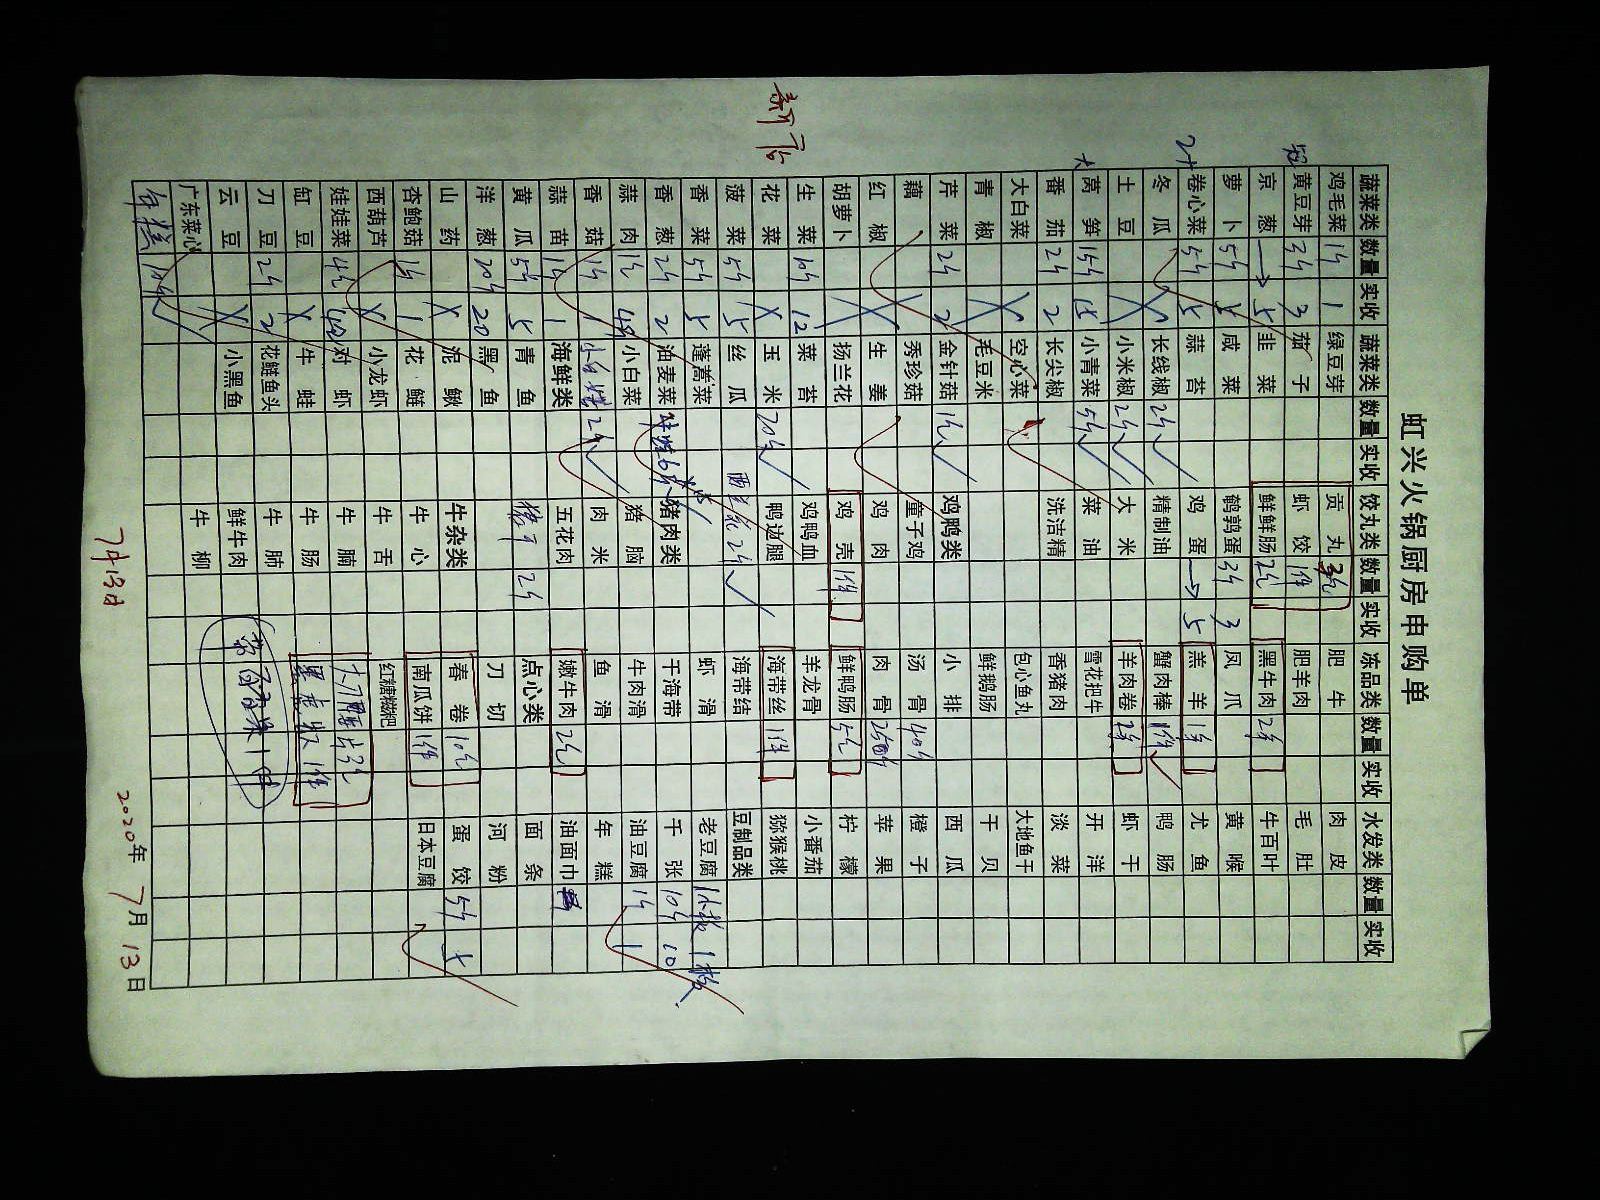 虹兴火锅厨房申购单
新店
蔬菜类 数量 实收 蔬菜类 数量 实收 饺丸类 数量 实收 冻品类 数量 实收 水发类 数量 实收
鸡毛菜 1斤 1 绿豆芽 贡丸 3包 肥牛 肉皮
黄豆芽 3斤 3 茄子 虾饺 1件 肥羊肉 毛肚
京葱 → 5 韭菜 鲜鲜肠 2包 黑牛肉 2件 牛百叶
萝卜 5斤 5 咸菜 鹌鹑蛋 3斤 3 凤爪 黄喉
卷心菜 5斤 5 蒜苔 鸡蛋 → 5 羔羊 1件 尤鱼
冬瓜 X 长线椒 2斤 ✓ 精制油 蟹肉棒 1件 ✓ 鸭肠
土豆 X 小米椒 2斤 ✓ 大米 羊肉卷 2件 虾干
大 莴笋 15斤 15 小青菜 5斤 ✓ 菜油 雪花把牛 开洋
番茄 2斤 2 长尖椒 洗洁精 香猪肉 淡菜
大白菜 X 空心菜 包心鱼丸 大地鱼干
青椒 X 毛豆米 鲜鹅肠 干贝
芹菜 2斤 2 金针菇 1包 ✓ 鸡鸭类 小排 西瓜
藕 X 秀珍菇 童子鸡 汤骨 40斤 橙子
红椒 X 生姜 鸡肉 肉骨 苹果
胡萝卜 X 扬兰花 鸡壳 1件 鲜鸭肠 5包 柠檬
生菜 10斤 12 菜苔 鸡鸭血 羊龙骨 小番茄
花菜 X 玉米 20斤 ✓ 鸭边腿 海带丝 1件 猕猴桃
菠菜 5斤 5 丝瓜 西兰花 2斤 ✓ 海带结 豆制品类
香菜 5斤 5 蓬蒿菜 虾滑 老豆腐 1板
香葱 2斤 2 油麦菜 猪肉类 干海带 千张 10斤 10
蒜肉 小白菜 猪脑 牛肉滑 油豆腐 1斤 1
香菇 1斤 1 2斤 ✓ 肉米 鱼滑 年糕
蒜苗 1斤 1 海鲜类 五花肉 嫩牛肉 2包 油面巾
黄瓜 5斤 5 青鱼 2斤 点心类 面条
洋葱 20斤 20 黑鱼 刀切 河粉
山药 X 泥鳅 牛杂类 春卷 10包 蛋饺 5斤 5
杏鲍菇 1斤 1 花鲢 牛心 南瓜饼 1件 日本豆腐
西葫芦 X 小龙虾 牛舌 红糖糍粑
娃娃菜 4包 对虾 牛腩
豇豆 X 牛蛙 牛肠 1件
刀豆 2斤 2 花鲢鱼头 牛肺
云豆 X 小黑鱼 鲜牛肉
广东菜心 牛柳
年糕 10斤 ✓
7月13日
2020年7月13日